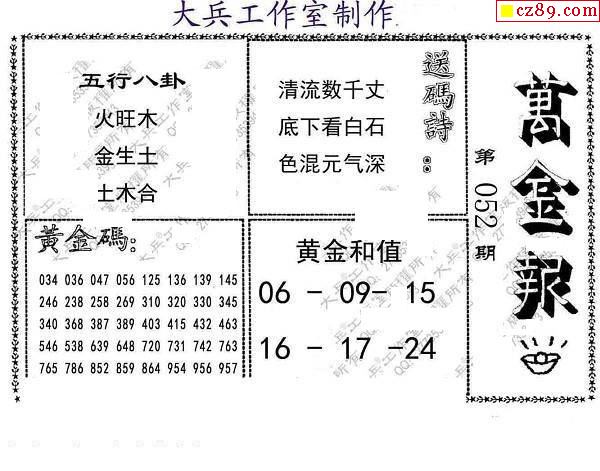 大兵工作室制作
cz89.com
五行八卦
火旺木
金生土
土木合
送碼詩：
清流数千丈
底下看白石
色混元气深
萬金報
第052期
黃金碼：
034 036 047 056 125 136 139 145
246 238 258 269 310 320 330 345
340 368 387 389 403 415 432 463
546 538 639 648 720 731 742 763
765 786 852 859 864 954 956 957
黄金和值
06 - 09- 15
16 - 17 -24